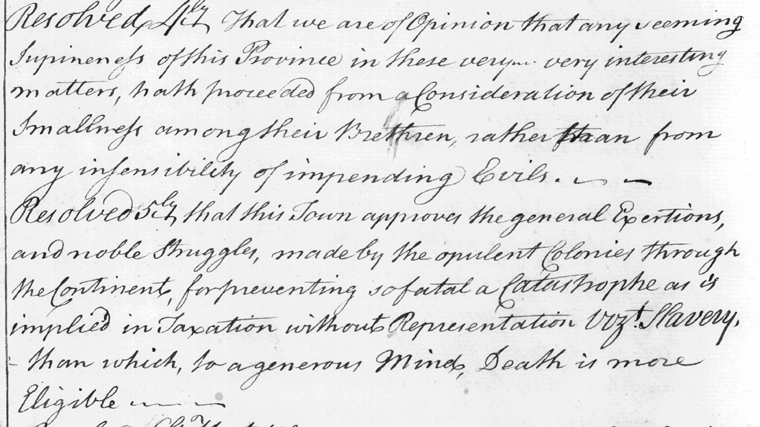 Resolved, 4ly That we are of Opinion that any seeming
Supineness of this Province in these very very interesting
matters, hath proceeded from a Consideration of their
Smallness among their Brethren, rather than from
any insensibility of impending Evils.
Resolved 5ly that this Town approves the general Exertions,
and noble Struggles, made by the opulent Colonies through
the Continent, for preventing so fatal a Catastrophe as is
implied in Taxation without Representation Vizt. Slavery,
than which, to a generous Mind, Death is more
Eligible